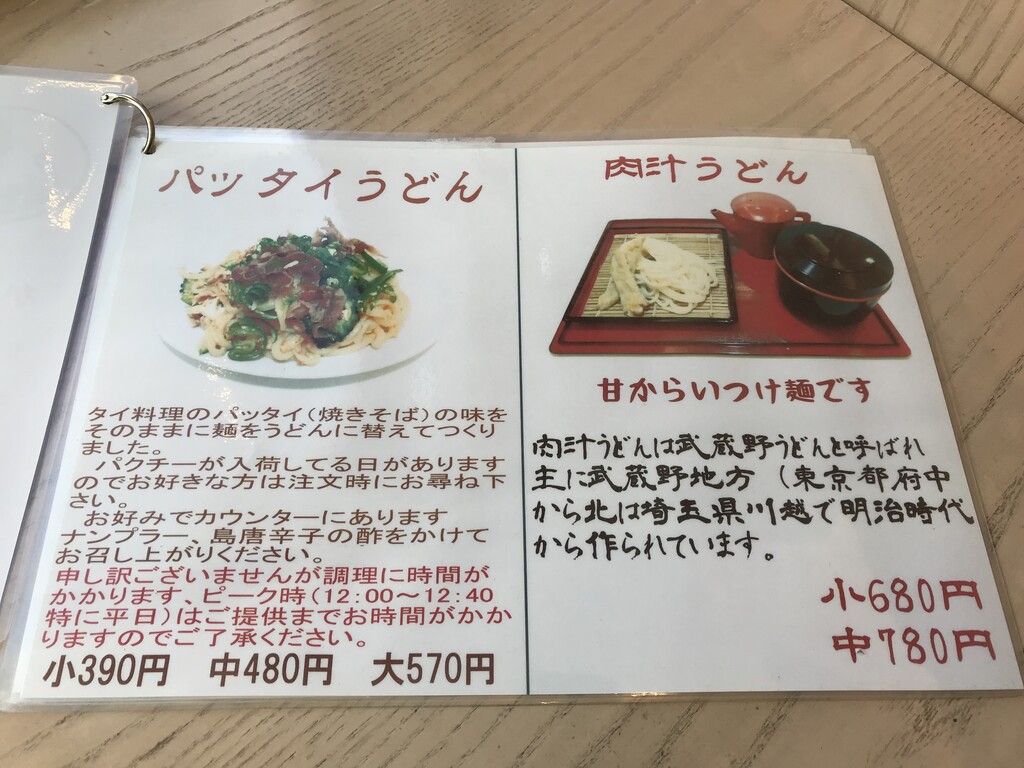 パッタイうどん
タイ料理のパッタイ(焼きそば)の味を
そのままに麺をうどんに替えてつくり
ました。
パクチーが入荷してる日があります
のでお好きな方は注文時にお尋ね下
さい。
お好みでカウンターにあります
ナンプラー、島唐辛子の酢をかけて
お召し上がりください。
申し訳ございませんが調理に時間が
かかります、ピーク時(12:00～12:40
特に平日)はご提供までお時間がかか
りますのでご了承ください。
小390円 中480円 大570円
肉汁うどん
甘からいつけ麺です
肉汁うどんは武蔵野うどんと呼ばれ
主に武蔵野地方(東京都府中
から北は埼玉県川越で明治時代
から作られています。
小680円
中780円